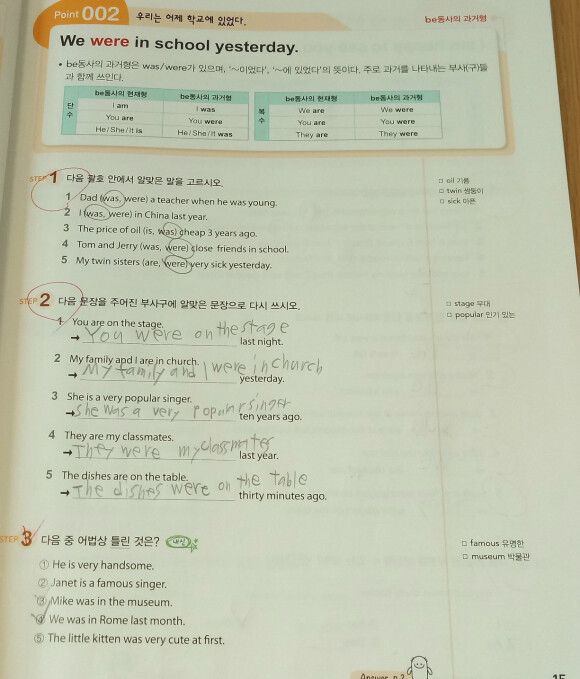 Point 002 우리는 어제 학교에 있었다. be동사의 과거형
We were in school yesterday.
• be동사의 과거형은 was/were가 있으며, '~이었다', '~에 있었다'의 뜻이다. 주로 과거를 나타내는 부사(구)들
과 함께 쓰인다.
be동사의 현재형 be동사의 과거형 be동사의 현재형 be동사의 과거형
단수 I am I was 복수 We are We were
You are You were You are You were
He/She/It is He/She/It was They are They were
STEP 1 다음 괄호 안에서 알맞은 말을 고르시오.
1 Dad (was, were) a teacher when he was young.
2 I (was, were) in China last year.
3 The price of oil (is, was) cheap 3 years ago.
4 Tom and Jerry (was, were) close friends in school.
5 My twin sisters (are, were) very sick yesterday.
□ oil 기름
□ twin 쌍둥이
□ sick 아픈
STEP 2 다음 문장을 주어진 부사구에 알맞은 문장으로 다시 쓰시오.
1 You are on the stage.
➞ You were on the stage last night.
2 My family and I are in church.
➞ My family and I were in church yesterday.
3 She is a very popular singer.
➞ she was a very singer ten years ago.
4 They are my classmates.
➞ They were my classmates last year.
5 The dishes are on the table.
➞ The dishes were on the table thirty minutes ago.
□ stage 무대
□ popular 인기 있는
STEP 3 다음 중 어법상 틀린 것은? 내신
① He is very handsome.
② Janet is a famous singer.
③ Mike was in the museum.
④ We was in Rome last month.
⑤ The little kitten was very cute at first.
□ famous 유명한
□ museum 박물관
Answer p.2 15